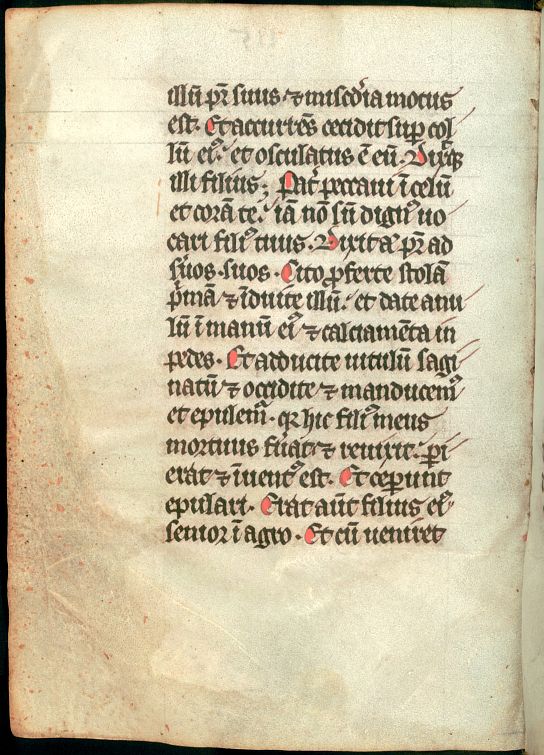 illū pr̄ suus ⁊ mis̄cdia motus
est. Et accurrēs cecidit suꝑ col
lū eiꝰ. et osculatus ē eū. Dixitqꝫ
illi filius; Pat̄ peccaui ī celū
et corā te. iā nō sū dignꝰ uo
cari filiꝰ tuus. Dixit aᷣ pr̄ ad
s̄uos suos. Cito ꝓferte stolā
p̄mā ⁊ īduite illū. et date anu
lū ī manū eiꝰ ⁊ calciamēta in
pedes. Et adducite uitulū sagi
natū ⁊ occidite ⁊ manducemꝰ
et epulem̄. qꝛ hic filiꝰ meus
mortuus fūat ⁊ reuixit. ꝑi
erat ⁊ īuentꝰ est. Et ceperunt
epulari. Erat aūt filius eiꝰ
senior ī agro. Et cū ueniret